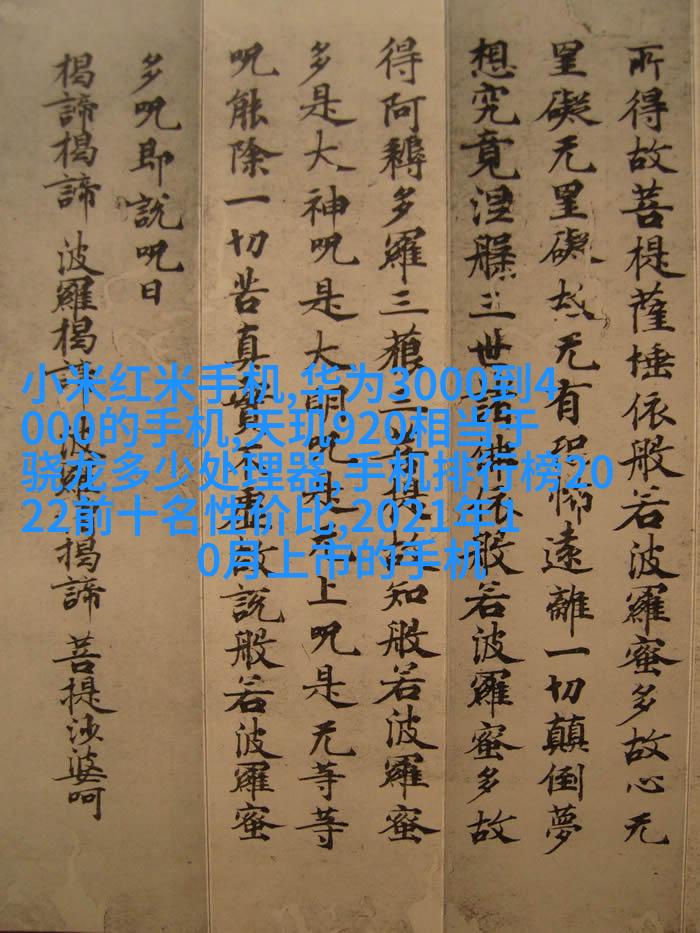 所得故菩提薩埵依般若波羅蜜多故心无
罣礙无罣礙故无有恐怖遠離一切顛倒夢
想究竟涅槃三世諸佛依般若波羅蜜多故
得阿耨多羅三藐三菩提故知般若波羅蜜
多是大神呪是大明呪是无上呪是无等等
呪能除一切苦真實不虛故說般若波羅蜜
多呪即說呪曰
揭諦揭諦 波羅揭諦 波羅揭諦 菩提沙婆呵
小米红米手机,华为3000到4
000的手机,天玑920相当于
骁龙多少处理器,手机排行榜20
22前十名性价比,2021年1
0月上市的手机